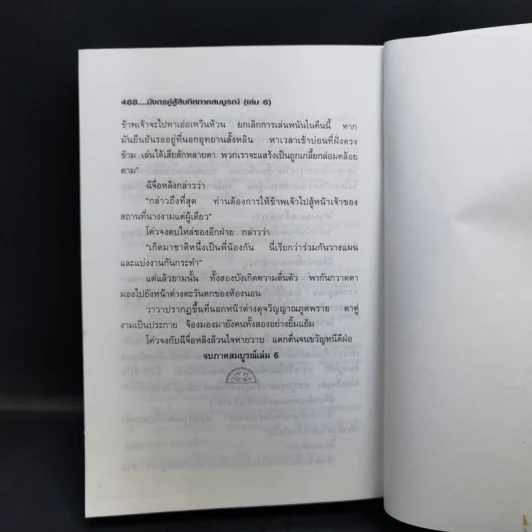 488....มังกรคู่สู้สิบทิศภาคสมบูรณ์ (เล่ม 6)
ข้าพเจ้าจะไปหาเอ่อเหวินห้วน ยกเลิกการเล่นพนันในคืนนี้ หาก
มันยืนยันรออยู่ที่นอกอุทยานสั้งหลิน หาเวลาเข้าบ่อนที่ฝั่งตรง
ข้าม เล่นได้เสียสักหลายตา พวกเราจะแสร้งเป็นถูกเกลี้ยกล่อมคล้อย
ตาม"
ฉีจื่อหลิงกล่าวว่า
"กล่าวถึงที่สุด ท่านต้องการให้ข้าพเจ้าไปสู้หน้าเจ้าของ
สถานที่นางงามแต่ผู้เดียว"
โค่วจงตบไหล่ของอีกฝ่าย กล่าวว่า
"เกิดมาชาติหนึ่งเป็นพี่น้องกัน นี่เรียกว่าร่วมกันวางแผน
และแบ่งงานกันกระทำ"
แต่แล้วยามนั้น ทั้งสองบังเกิดความตื่นตัว พากันกวาดตา
มองไปยังหน้าต่างตะวันตกของห้องนอน
วาวาปรากฏขึ้นที่นอกหน้าต่างดุจวิญญาณภูตพราย ตาคู่
งามเป็นประกาย จ้องมองมายังคนทั้งสองอย่างยิ้มแย้ม
โค่วจงกับฉีจื่อหลิงล้วนใจหายวาบ แตกตื่นจนขวัญหนีดีฝ่อ
จบภาคสมบูรณ์เล่ม 6